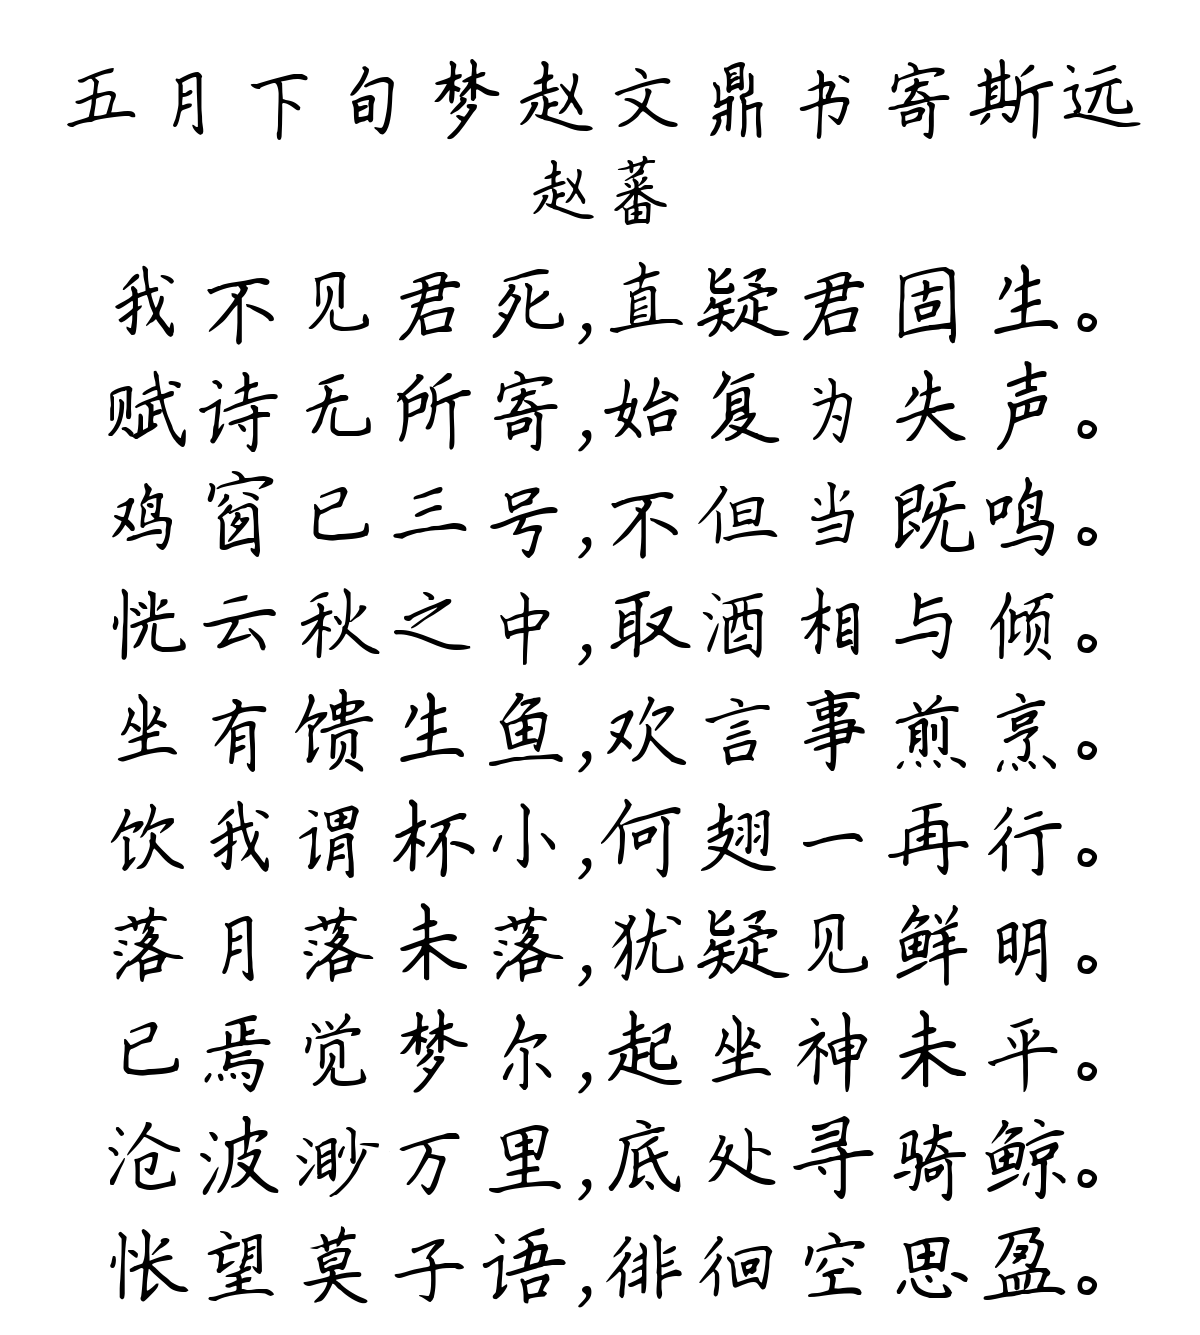 五月下旬梦赵文鼎书寄斯远
赵蕃
我不见君死,直疑君固生。
赋诗无所寄,始复为失声。
鸡窗已三号,不但当既鸣。
恍云秋之中,取酒相与倾。
坐有馈生鱼,欢言事煎烹。
饮我谓杯小,何翅一再行。
落月落未落,犹疑见鲜明。
已焉觉梦尔,起坐神未平。
沧波渺万里,底处寻骑鲸。
怅望莫子语,徘徊空思盈。